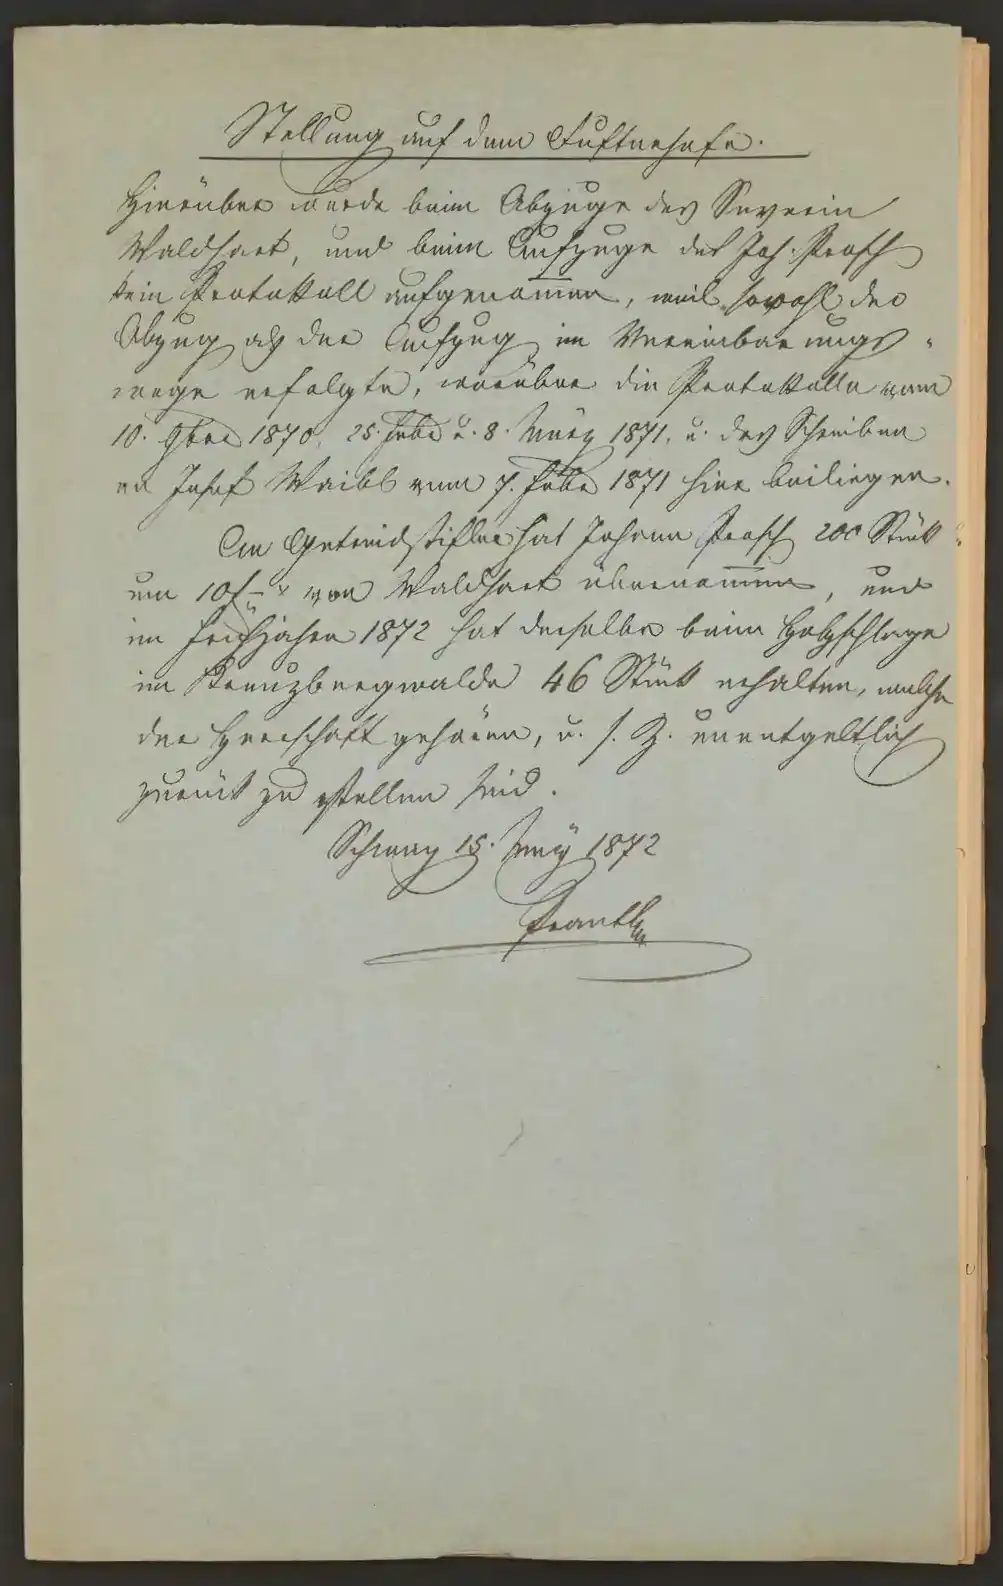 Stellung auf dem Luftnerhofe.
Hierüber wurde beim Abzuge des Severin
Waldhart, und beim Aufzuge des Joh. Prosch
kein Protokoll aufgenommen, weil sowohl der
Abzug als der Aufzug im Vereinbarungs-
wege erfolgte, worüber die Protokolle vom
10. 9ber 1870, 25. Febr u. 8. März 1871, u. das Schreiben
an Josef Waibl vom 7. Febr 1871 hier beiliegen.
An Getreidstiflern hat Johann Prosch 200 Stük
um 10 f – x von Waldhart übernommen, und
im Frühjahre 1872 hat derselbe beim Holzschlage
im Kreuzbergwalde 46 Stük erhalten, welche
der Herrschaft gehören, u. s. Z. unentgeltlich
zurük zu stellen sind.
Schwaz 15. May 1872
Prantl